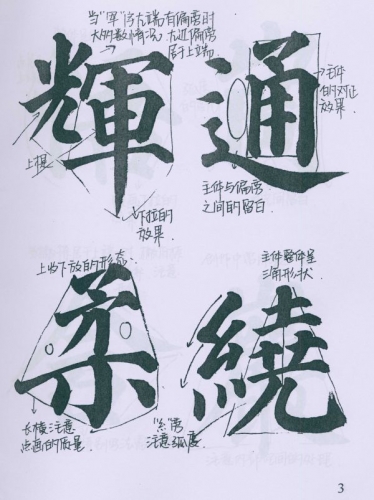 当"军"字左端有偏旁时
大多数情况,左边偏旁
居于上端.
輝
上提
下拉的
效果
通
主件
的对正
效果.
主件与偏旁
之间的留白.
上收下放的形态.
柔
长横注意
点画的质量.
主件整体呈
三角形状.
繞
"糹"旁
注意弧度.
3